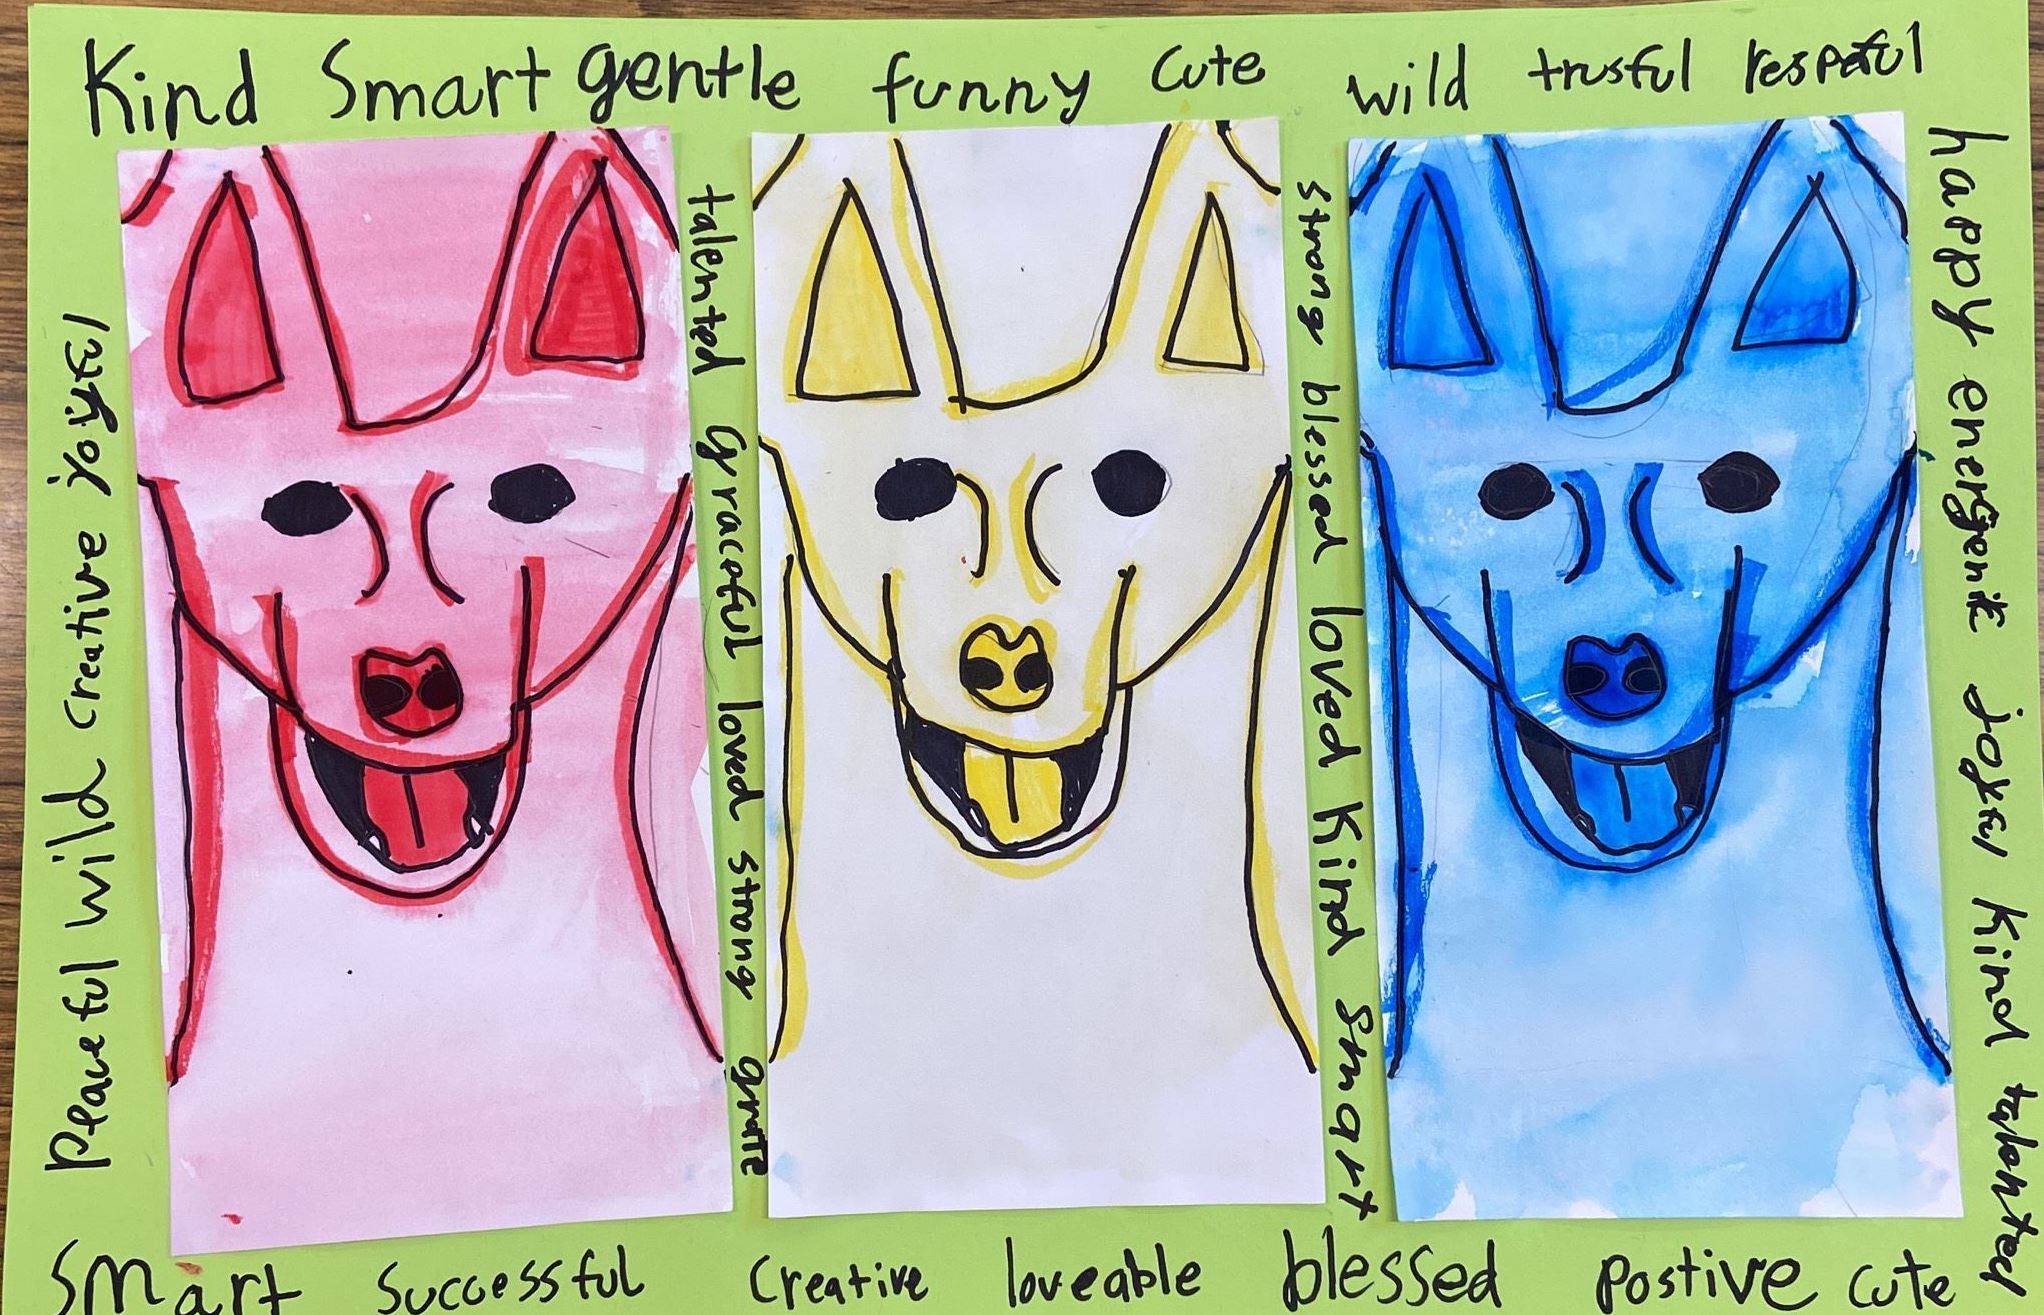 Kind Smart gentle funny cute wild trusful respeful
Peaceful wild creative joyful
talented graceful loved strong
strong blessed loved Kind smart
happy energenic joyful Kind talented
Smart Successful Creative loveable blessed postive cute